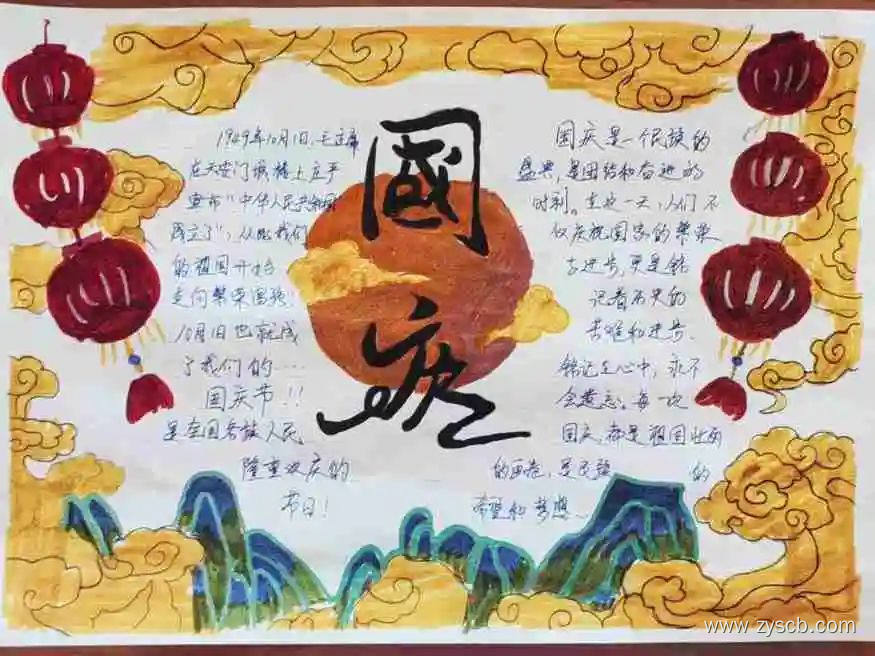 國
庆
1949年10月1日，毛主席
在天安门城楼上庄严
宣布"中华人民共和国
成立了"，从此我们
的祖国开始
走向繁荣富强
10月1日也就成
了我们的……
国庆节！！
是全国各族人民
隆重欢庆的
节日！
国庆是一个民族的
盛典，是团结和奋进的
时刻。在这一天，人们不
仅庆祝国家的繁荣
与进步，更是铭
记着历史的
苦难和进步，
铭记在心中，永不
会遗忘。每一次
国庆，都是祖国壮丽
的画卷，是民族的
希望和梦想…
www.zyscb.com